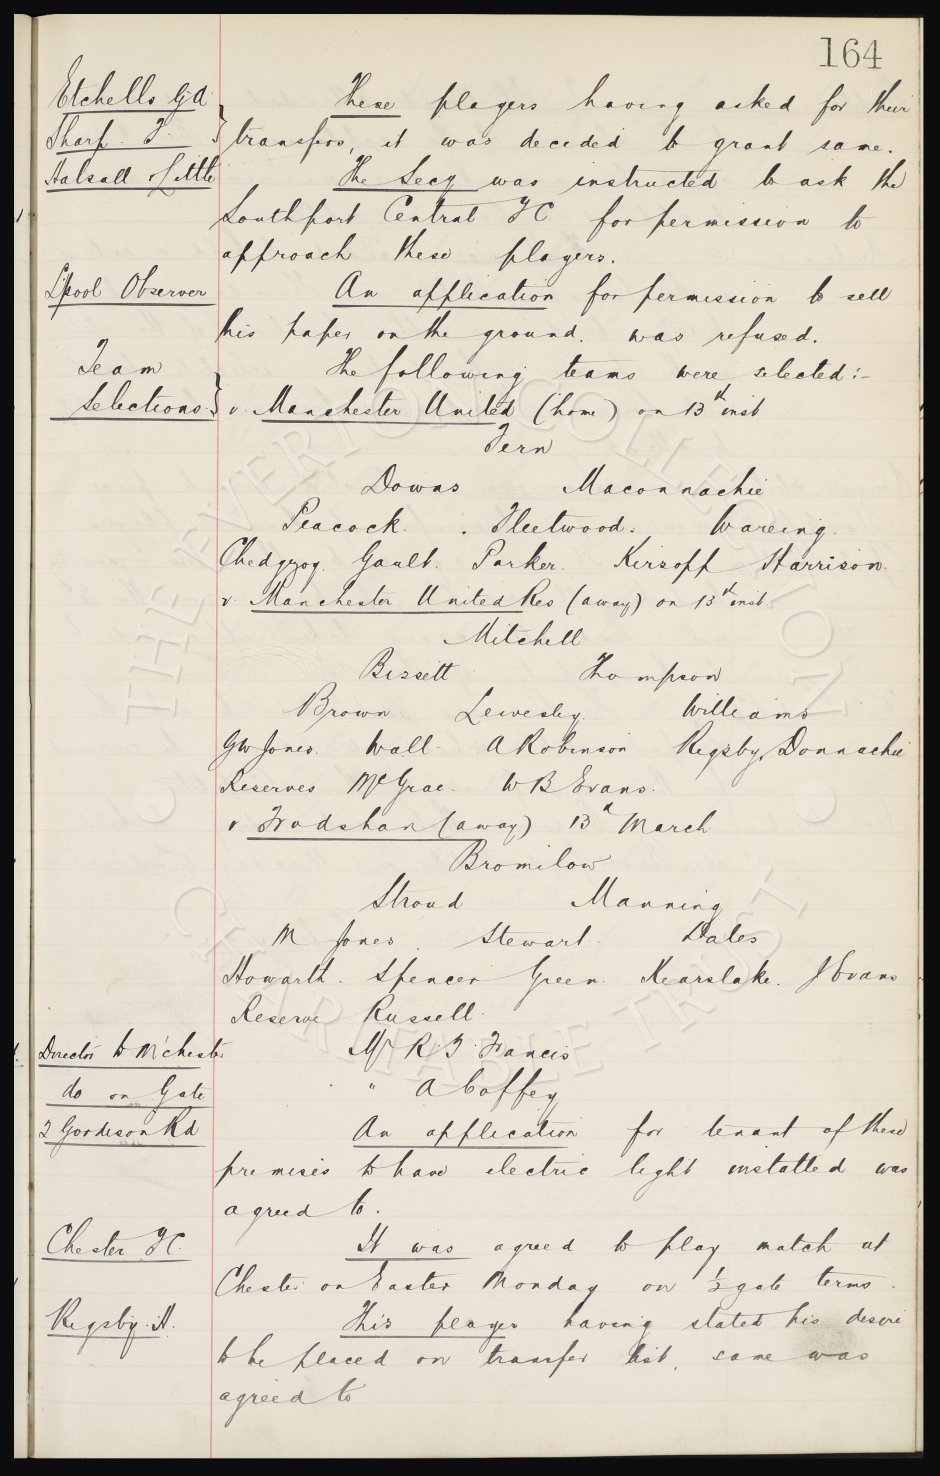 164
Etchells G.A. These players having asked for their
Sharp. J. transfers, it was decided to grant same.
Halsall & Little The Secy was instructed to ask the
Southport Central F C for permission to
approach these players.
L'pool Observer An application for permission to sell
this paper on the ground. was refused.
Team The following teams were selected:-
Selections. v. Manchester United (home) on 13th inst
Fern
Downs Maconnachie
Peacock. Fleetwood. Wareing.
Chedgzoy. Gault. Parker. Kirsopp Harrison.
v. Manchester United Res (away) on 13th inst
Mitchell
Bissett Thompson
Brown Lewesley. Williams
GW Jones. Wall. A Robinson Rigsby, Donnachie
Reserves McGrae. W B Evans.
v Frodsham (away) 13th March
Bromilow
Stroud Manning
M Jones. Stewart. Dales
Howarth. Spencer Green. Kearslake. J Evans
Reserve Russell.
Director to M'chester Mr R. F. Francis
do on Gate " A Coffey
2 Goodison Rd An application for tenant of these
premises to have electric light installed was
agreed to.
Chester F C. It was agreed to play match at
Chester on Easter Monday on ½ gate terms.
Rigsby. H. This player having stated his desire
to be placed on transfer list, same was
agreed to
THE EVERTON COLLECTION
CHARITABLE TRUST